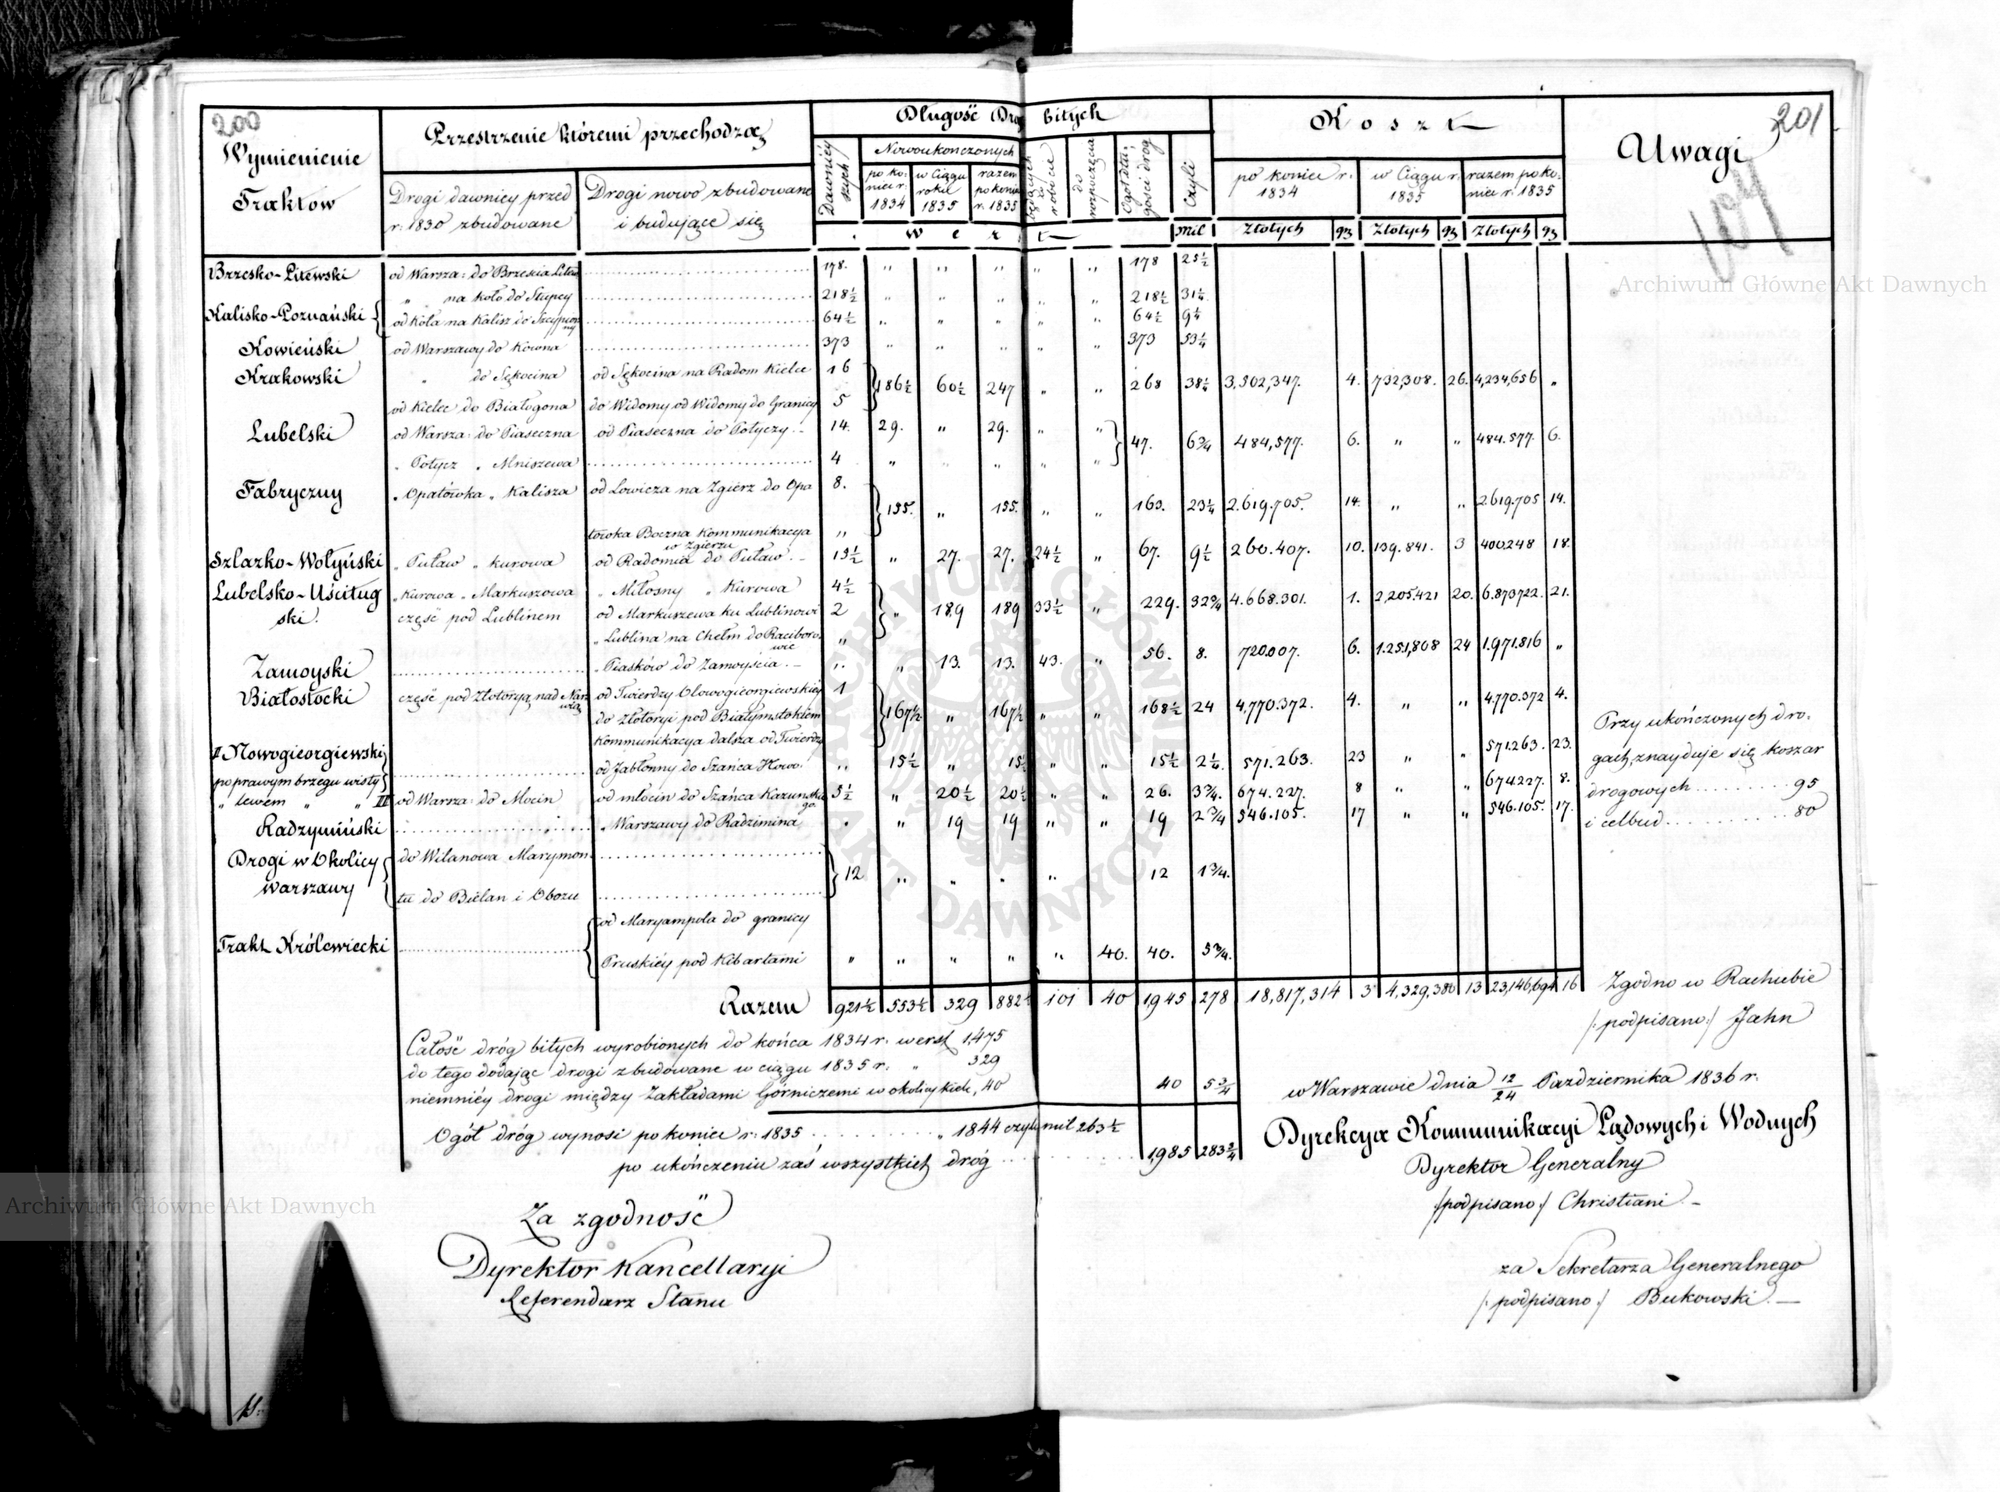 200
201
104
Wymienienie Traktów | Przestrzenie któremi przechodzą | Długość Dróg bitych | Koszt | Uwagi
Drogi dawniey przed r: 1830 zbudowane | Drogi nowo zbudowane i budujące się | Dawnieyszych | Nowoukończonych | będących w robocie | do rozpoczęcia | Ogół długości dróg | Czyli | po koniec r: 1834 | w Ciągu r: 1835 | razem po koniec r: 1835
po koniec r: 1834 | w Ciągu roku 1835 | razem po koniec r: 1835
werst | mil | Złotych | gr | Złotych | gr | Złotych | gr
Brzesko-Litewski | od Warsza: do Brześcia Litew | 178. | " | " | " | " | " | 178 | 25½
Kalisko-Poznański { " " na Koło do Słupcy | 218½ | " | " | " | " | " | 218½ | 31¼
od Koła na Kalisz do Szczypiorny | 64½ | " | " | " | " | " | 64½ | 9¼
Kowieński | od Warszawy do Kowna | 373 | " | " | " | " | " | 373 | 53¼
Krakowski | " do Sękocina | od Sękocina na Radom Kielce | 16 | } 186½ | 60½ | 247 | " | " | 268 | 38¼ | 3,502,347. | 4. | 732,308. | 26. | 4,234,656 | "
od Kielec do Białogona | do Widomy od Widomy do Granicy | 5
Lubelski | od Warsza: do Piaseczna | od Piaseczna do Potyczy | 14. | 29. | " | 29. | " | " | } 47. | 6¾ | 484,577. | 6. | " | " | 484.577. | 6.
" Potycz " Mniszewa | 4 | " | " | " | " | "
Fabryczny | " Opatówka " Kalisza | od Łowicza na Zgierz do Opa | 8. | } 155. | " | 155. | " | " | 163. | 23¼ | 2.619.705. | 14. | " | " | 2.619.705 | 14.
tówka Boczna Kommunikacya w Zgierzu | "
Szlazko-Wołyński | " Puław " Kurowa | od Radomia do Puław | 15½ | " | 27. | 27. | 24½ | " | 67. | 9½ | 260.407. | 10. | 139.841. | 3 | 400.248 | 18.
Lubelsko-Uściług | " Kurowa " Markuszowa | " Miłosny " Kurowa | 4½
ski. | część pod Lublinem | od Markuszewa ku Lublinowi | 2 | } " | 189 | 189 | 33½ | " | 229. | 32¾ | 4.668.301. | 1. | 2,205,421 | 20. | 6.873.722. | 21.
" Lublina na Chełm do Raciborowic | "
Zamoyski | " Piasków do Zamoyścia | " | " | 13. | 13. | 43. | " | 56. | 8. | 720.007. | 6. | 1.251,808 | 24 | 1.971.816 | "
Białostocki | część pod Złotoryą nad Narwią | od Twierdzy Nowogieorgiewskiey | 1 | } 167½ | " | 167½ | " | " | 168½ | 24 | 4,770.372. | 4. | " | " | 4.770.372 | 4.
do Złotoryi pod Białymstokiem
Kommunikacya dalsza od Twierdzy
I Nowogieorgiewski po prawym brzegu wisły | od Jabłonny do Szańca Nowo. | " | 15½ | " | 15½ | " | " | 15½ | 2¼ | 571.263. | 23 | " | " | 571.263. | 23.
" Lewem " " II | od Warsza: do Mocin | od młocin do Szańca Kazuńskiego | 5½ | " | 20½ | 20½ | " | " | 26. | 3¾. | 674.227. | 8 | " | " | 674.227. | 8.
Radzymiński | " Warszawy do Radzimina | " | " | 19 | 19 | " | " | 19 | 2¾ | 546.105. | 17 | " | " | 546.105. | 17.
Drogi w Okolicy Warszawy { do Wilanowa Marymon | } 12 | " | " | " | " | 12 | 1¾.
tu do Bielan i Obozu
Trakt Królewiecki { od Maryampola do granicy
Pruskiéy pod Kibartami | " | " | " | " | " | 40. | 40. | 5¾.
Razem | 921½ | 553½ | 329 | 882½ | 101 | 40 | 1,945 | 278 | 18,817,314 | 3 | 4,329,380 | 13 | 23,146,694 | 16
Całość dróg bitych wyrobionych do końca 1834 r: werst 1,475
do tego dodając drogi zbudowane w ciągu 1835 r: " 329
niemniéy drogi między Zakładami Górniczemi w okolicy Kielc, 40 | 40 | 5¾
Ogół dróg wynosi po koniec r: 1835 " 1844 czyli mil 263½
po ukończeniu zaś wszystkich dróg | 1,985 | 283¾
Za zgodność
Dyrektor Kancellaryi
Referendarz Stanu
Przy ukończonych dro-
gach, znayduje się koszar
drogowych 95
i celbud 80
Zgodno w Rachubie
/:podpisano:/ Jahn
w Warszawie dnia 12/24 Października 1836 r:
Dyrekcya Kommunikacyi Lądowych i Wodnych
Dyrektor Generalny
/podpisano/ Christiani
za Sekretarza Generalnego
/:podpisano:/ Bukowski.
Archiwum Główne Akt Dawnych
Archiwum Główne Akt Dawnych
ARCHIWUM GŁÓWNE AKT DAWNYCH